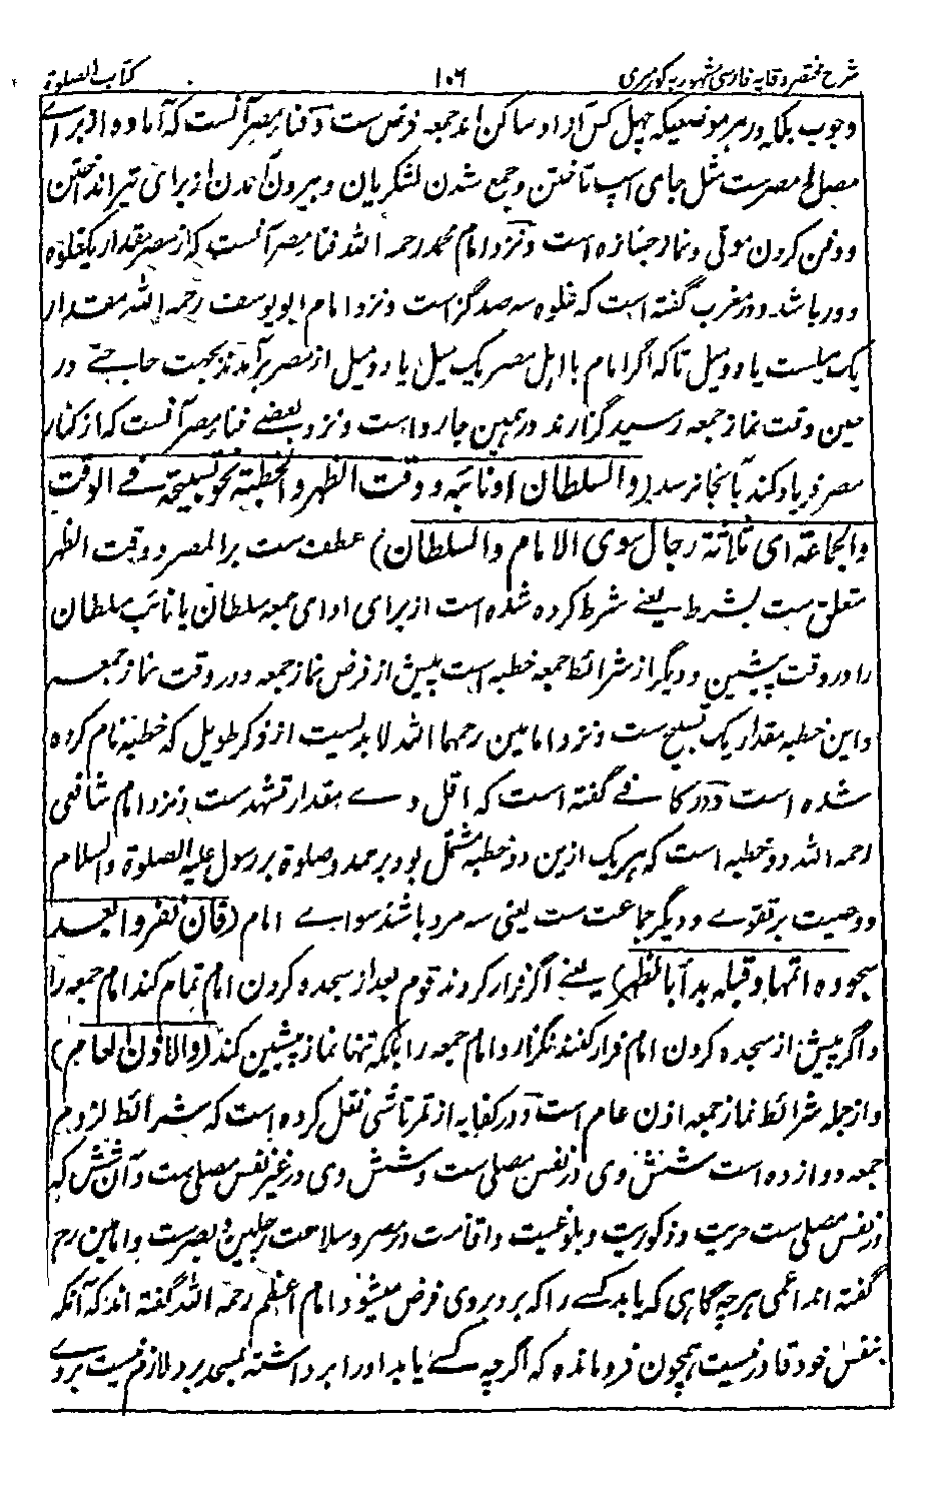 شرح مختصر وقایه فارسی مشهور به کور میری ۱۰۶ کتاب الصلوة
وجوب بلکه در هر موضعیکه چهل کس آزاد ساکن اند جمعه فرض ست و فنا مصر آنست که آماده از برای
مصالح مصرست مثل جای اسپ تاختن و جمع شدن لشکریان و بیرون آمدن از برای تیر انداختن
و دفن کردن موتی و نماز جنازه است و نزد امام محمد رحمه الله فنا مصر آنست که از مصر مقدار یکغلوه
دور باشد و در مغرب گفته است که غلوه سه صد گز است و نزد امام ابو یوسف رحمه الله مقدار
یک میلست یا دو میل تا که اگر امام با اهل مصر یک میل یا دو میل از مصر برآمدند بجهت حاجتے در
عین وقت نماز جمعه رسید گزارند در همین جا روا است و نزد بعضے فنا مصر آنست که از کنار
مصر فریاد کند بآنجا نرسد (والسلطان او نائبه و وقت الظهر والخطبة نحو تسبیحة فے الوقت
والجماعة ای ثلاثة رجال سوی الامام والسلطان) عطف ست بر المصر و وقت الظهر
متعلق ست بشرط یعنے شرط کرده شده است از برای ادای جمعه سلطان یا نائب سلطان
را در وقت پیشین و دیگر از شرائط جمعه خطبه است پیش از فرض نماز جمعه و در وقت نماز جمعه
و این خطبه مقدار یک تسبیح ست و نزد امامین رحمهما الله لا بدیست از ذکر طویل که خطبه نام کرده
شده است و در کافے گفته است که اقل وے مقدار تشهد ست و نزد امام شافعی
رحمه الله دو خطبه است که هریک ازین دو خطبه مشتمل بود بر حمد و صلوة بر رسول علیه الصلوة والسلام
و وصیت بر تقوے و دیگر جماعت ست یعنی سه مرد باشند سواے امام (فان نفروا بعد
سجوده اتمها و قبله بدأ بالظهر) یعنے اگر فرار کردند قوم بعد از سجده کردن امام تمام کند امام جمعه را
و اگر پیش از سجده کردن امام فرار کنند نگزارد امام جمعه را بلکه تنها نماز پیشین کند (والاذن العام)
و از جمله شرائط نماز جمعه اذن عام است و در کفایه از تمرتاشی نقل کرده است که شرائط لزوم
جمعه دوازده است شش وی در نفس مصلی ست و شش وی در غیر نفس مصلی ست و آن شش که
در نفس مصلی ست حریت و ذکوریت و بلوغیت و اقامت در مصر و سلامت رجلین و بصرست و امامین رحم
گفته اند اعمی هرچه گاهی که یابد کسے را که برد بروی فرض میشود و امام اعظم رحمه الله گفته اند که آنکه
بنفس خود قادر نیست همچون فرومانده که اگرچه کسے یابد او را برداشته بمسجد برد لازم نیست بروے